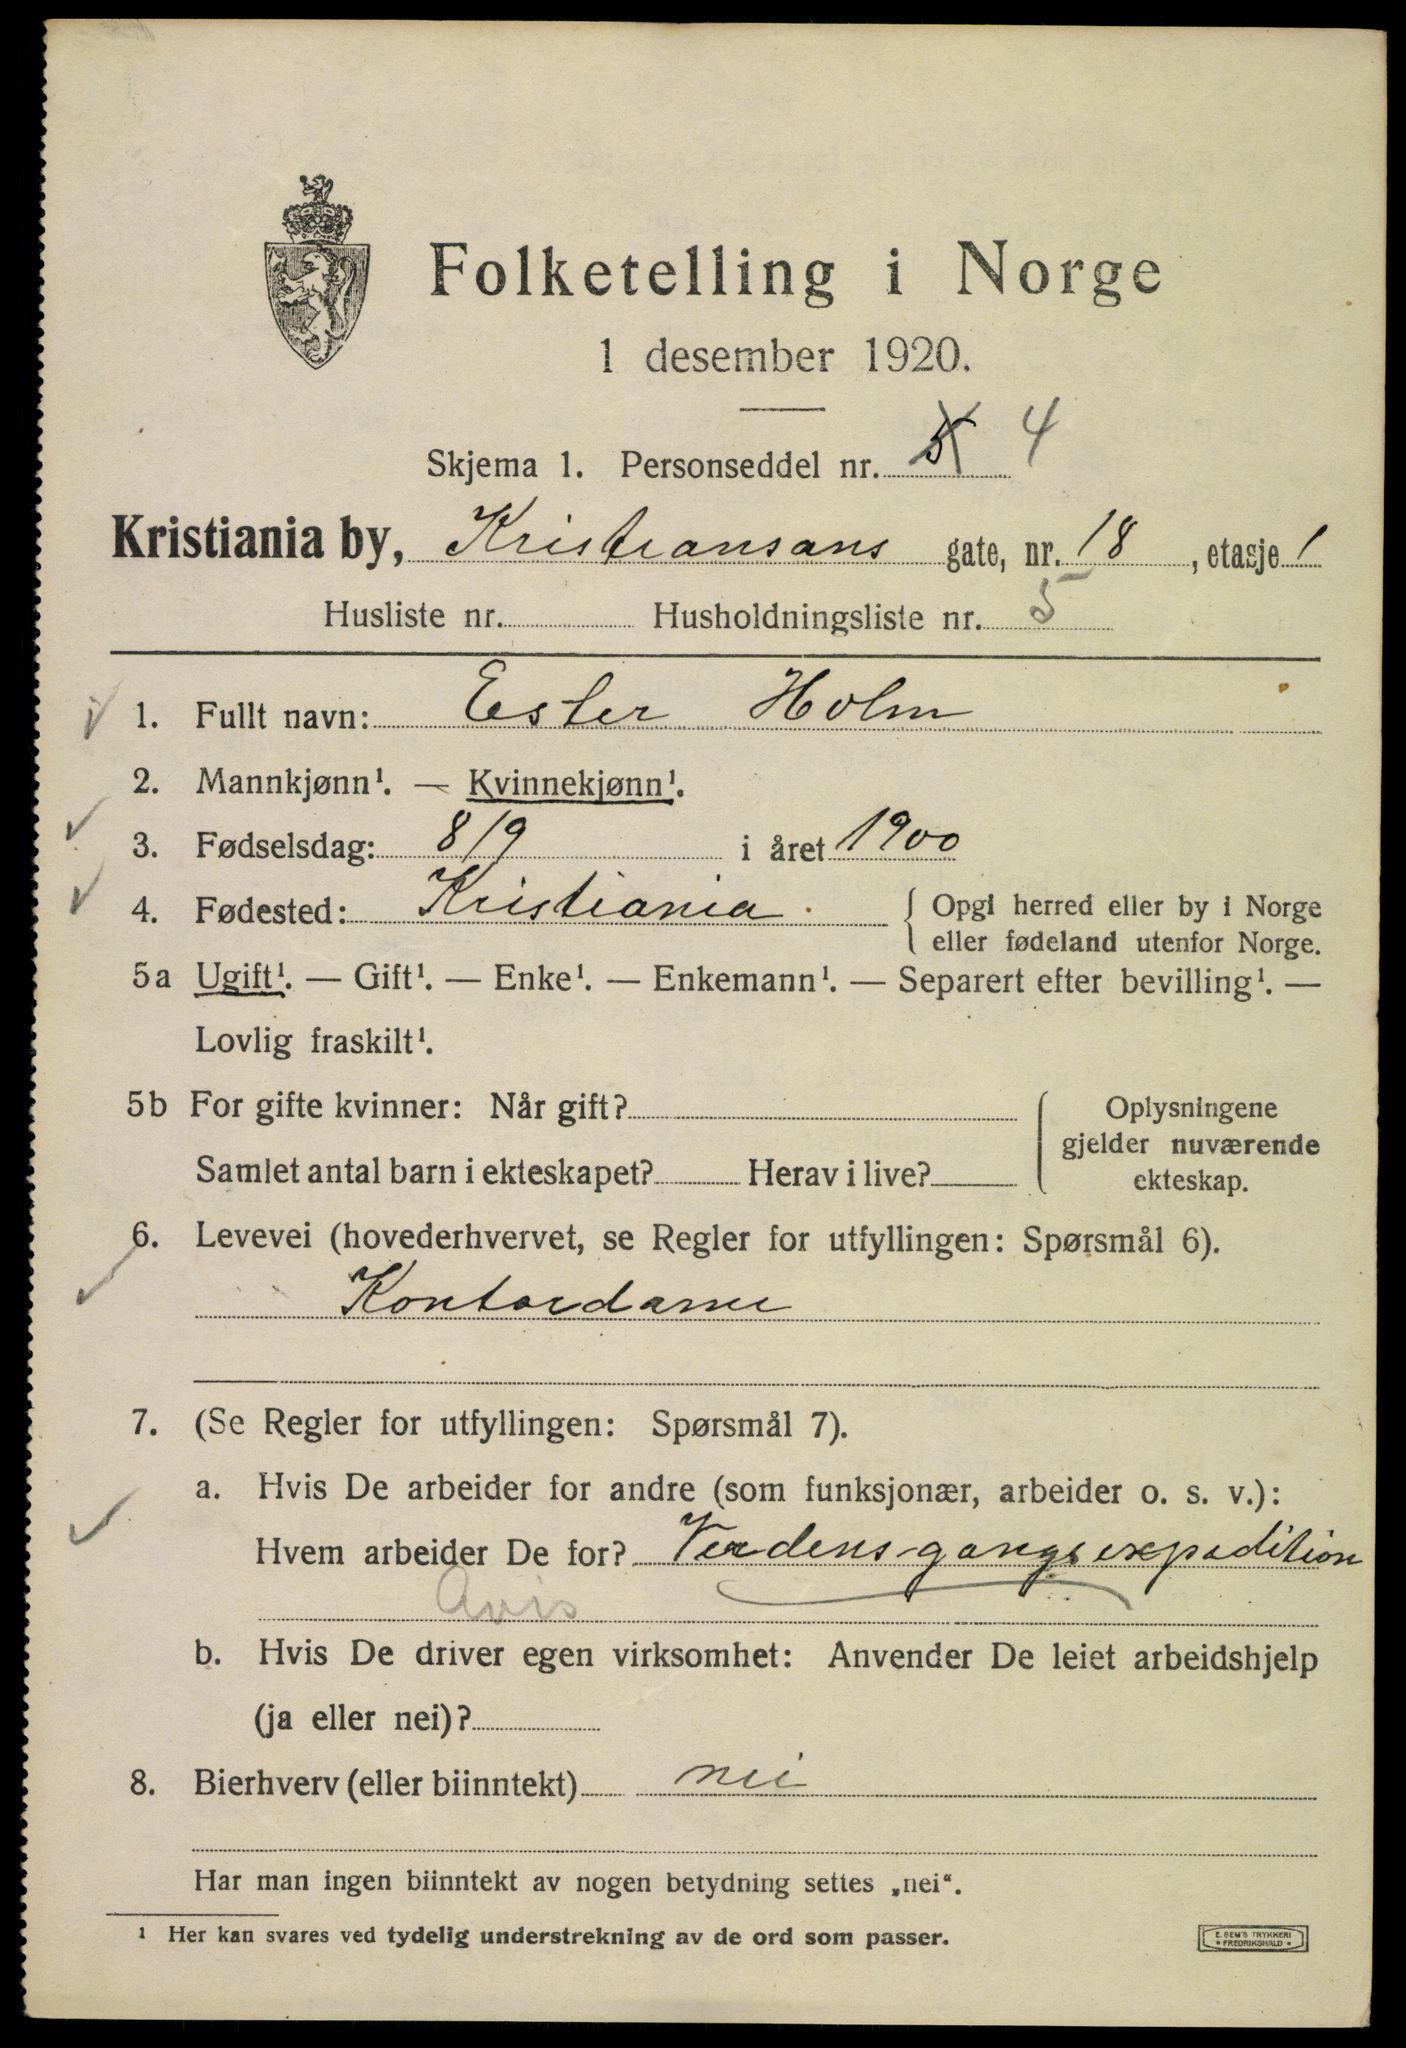 Folketelling i Norge
1 desember 1920.
Skjema 1. Personseddel nr. 5 4
Kristiania by, Kristiansans gate, nr. 18, etasje 1
Husliste nr. Husholdningsliste nr. 5
1. Fullt navn: Ester Holm
2. Mannkjønn¹. — Kvinnekjønn¹.
3. Fødselsdag: 8/9 i året 1900
4. Fødested: Kristiania. { Opgi herred eller by i Norge
eller fødeland utenfor Norge.
5a Ugift¹. — Gift¹. — Enke¹. — Enkemann¹. — Separert efter bevilling¹. —
Lovlig fraskilt¹.
5b For gifte kvinner: Når gift? { Oplysningene
gjelder nuværende
Samlet antal barn i ekteskapet? Herav i live? ekteskap.
6. Levevei (hovederhvervet, se Regler for utfyllingen: Spørsmål 6).
Kontordame
7. (Se Regler for utfyllingen: Spørsmål 7).
a. Hvis De arbeider for andre (som funksjonær, arbeider o. s. v.):
Hvem arbeider De for? Verdens-gangs expedition
Avis
b. Hvis De driver egen virksomhet: Anvender De leiet arbeidshjelp
(ja eller nei)?
8. Bierhverv (eller biinntekt) nei
Har man ingen biinntekt av nogen betydning settes „nei“.
¹ Her kan svares ved tydelig understrekning av de ord som passer.
E. SEM'S TRYKKERI
* FREDRIKSHALD *